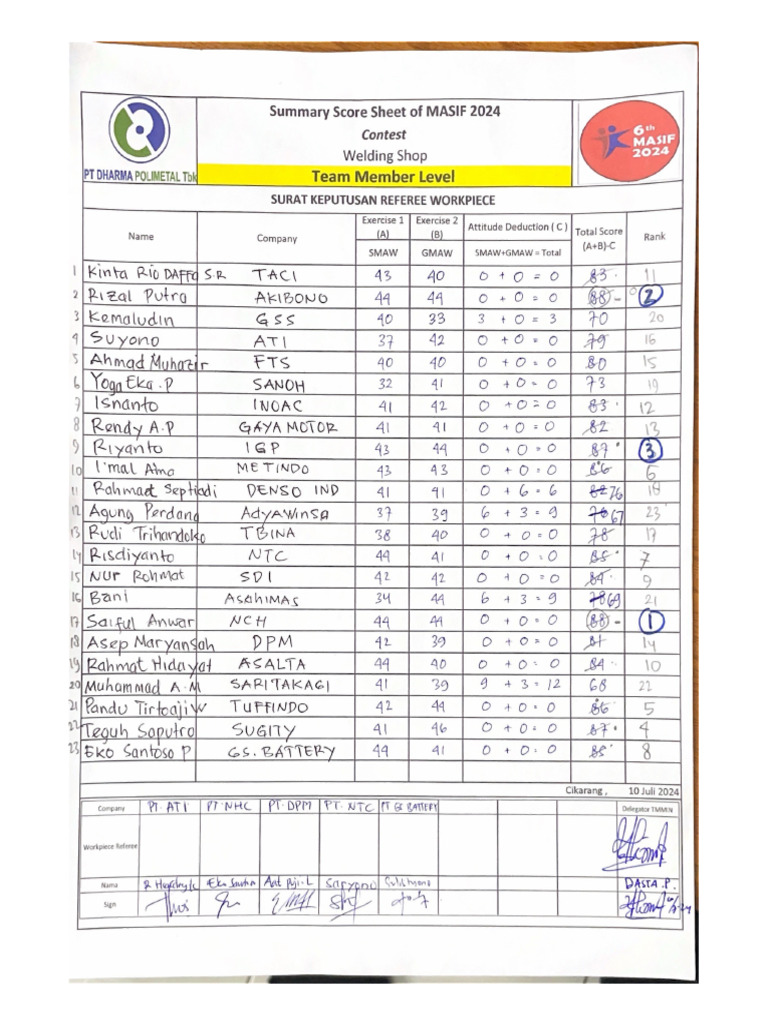 Summary Score Sheet of MASIF 2024
Contest
Welding Shop
Team Member Level
PT DHARMA POLIMETAL Tbk
6th MASIF 2024
SURAT KEPUTUSAN REFEREE WORKPIECE
Name Company Exercise 1 (A) SMAW Exercise 2 (B) GMAW Attitude Deduction ( C ) SMAW+GMAW = Total Total Score (A+B)-C Rank
1 Kinta Rio DAFFA S.R TACI 43 40 0 + 0 = 0 83 11
2 Rizal Putra AKIBONO 44 44 0 + 0 = 0 88 - 2
3 Kemaludin GSS 40 33 3 + 0 = 3 70 20
4 Suyono ATI 37 42 0 + 0 = 0 79 16
5 Ahmad Muhazir FTS 40 40 0 + 0 = 0 80 15
6 Yoga Eka .P SANOH 32 41 0 + 0 = 0 73 19
7 Isnanto INOAC 41 42 0 + 0 = 0 83 12
8 Rendy A.P GAYA MOTOR 41 41 0 + 0 = 0 82 13
9 Riyanto IGP 43 44 0 + 0 = 0 87 3
10 I'mal Atno METINDO 43 43 0 + 0 = 0 86 6
11 Rahmat Septiadi DENSO IND 41 41 0 + 6 = 6 82 76 18
12 Agung Perdana ADYAWINSA 37 39 6 + 3 = 9 76 67 23
13 Rudi Trihandoko TBINA 38 40 0 + 0 = 0 78 17
14 Risdiyanto NTC 44 41 0 + 0 = 0 85 7
15 NUR Rohmat SDI 42 42 0 + 0 = 0 84 9
16 Bani ASAHIMAS 34 44 6 + 3 = 9 78 69 21
17 Saiful Anwar NCH 44 44 0 + 0 = 0 88 - 1
18 Asep Maryansah DPM 42 39 0 + 0 = 0 81 14
19 Rahmat Hidayat ASALTA 44 40 0 + 0 = 0 84 10
20 Muhammad A.M SARITAKAGI 41 39 9 + 3 = 12 68 22
21 Pandu Tirtoaji W TUFFINDO 42 44 0 + 0 = 0 86 5
22 Teguh Saputro SUGITY 41 46 0 + 0 = 0 87 4
23 Eko Santoso P GS. BATTERY 44 41 0 + 0 = 0 85 8
Cikarang , 10 Juli 2024
Company PT. ATI PT. NHC PT. DPM PT. NTC PT GS BATTERY Delegator TMMIN
Workpiece Referee
Name Aat Puji.L Saryono DASTA .P.
Sign